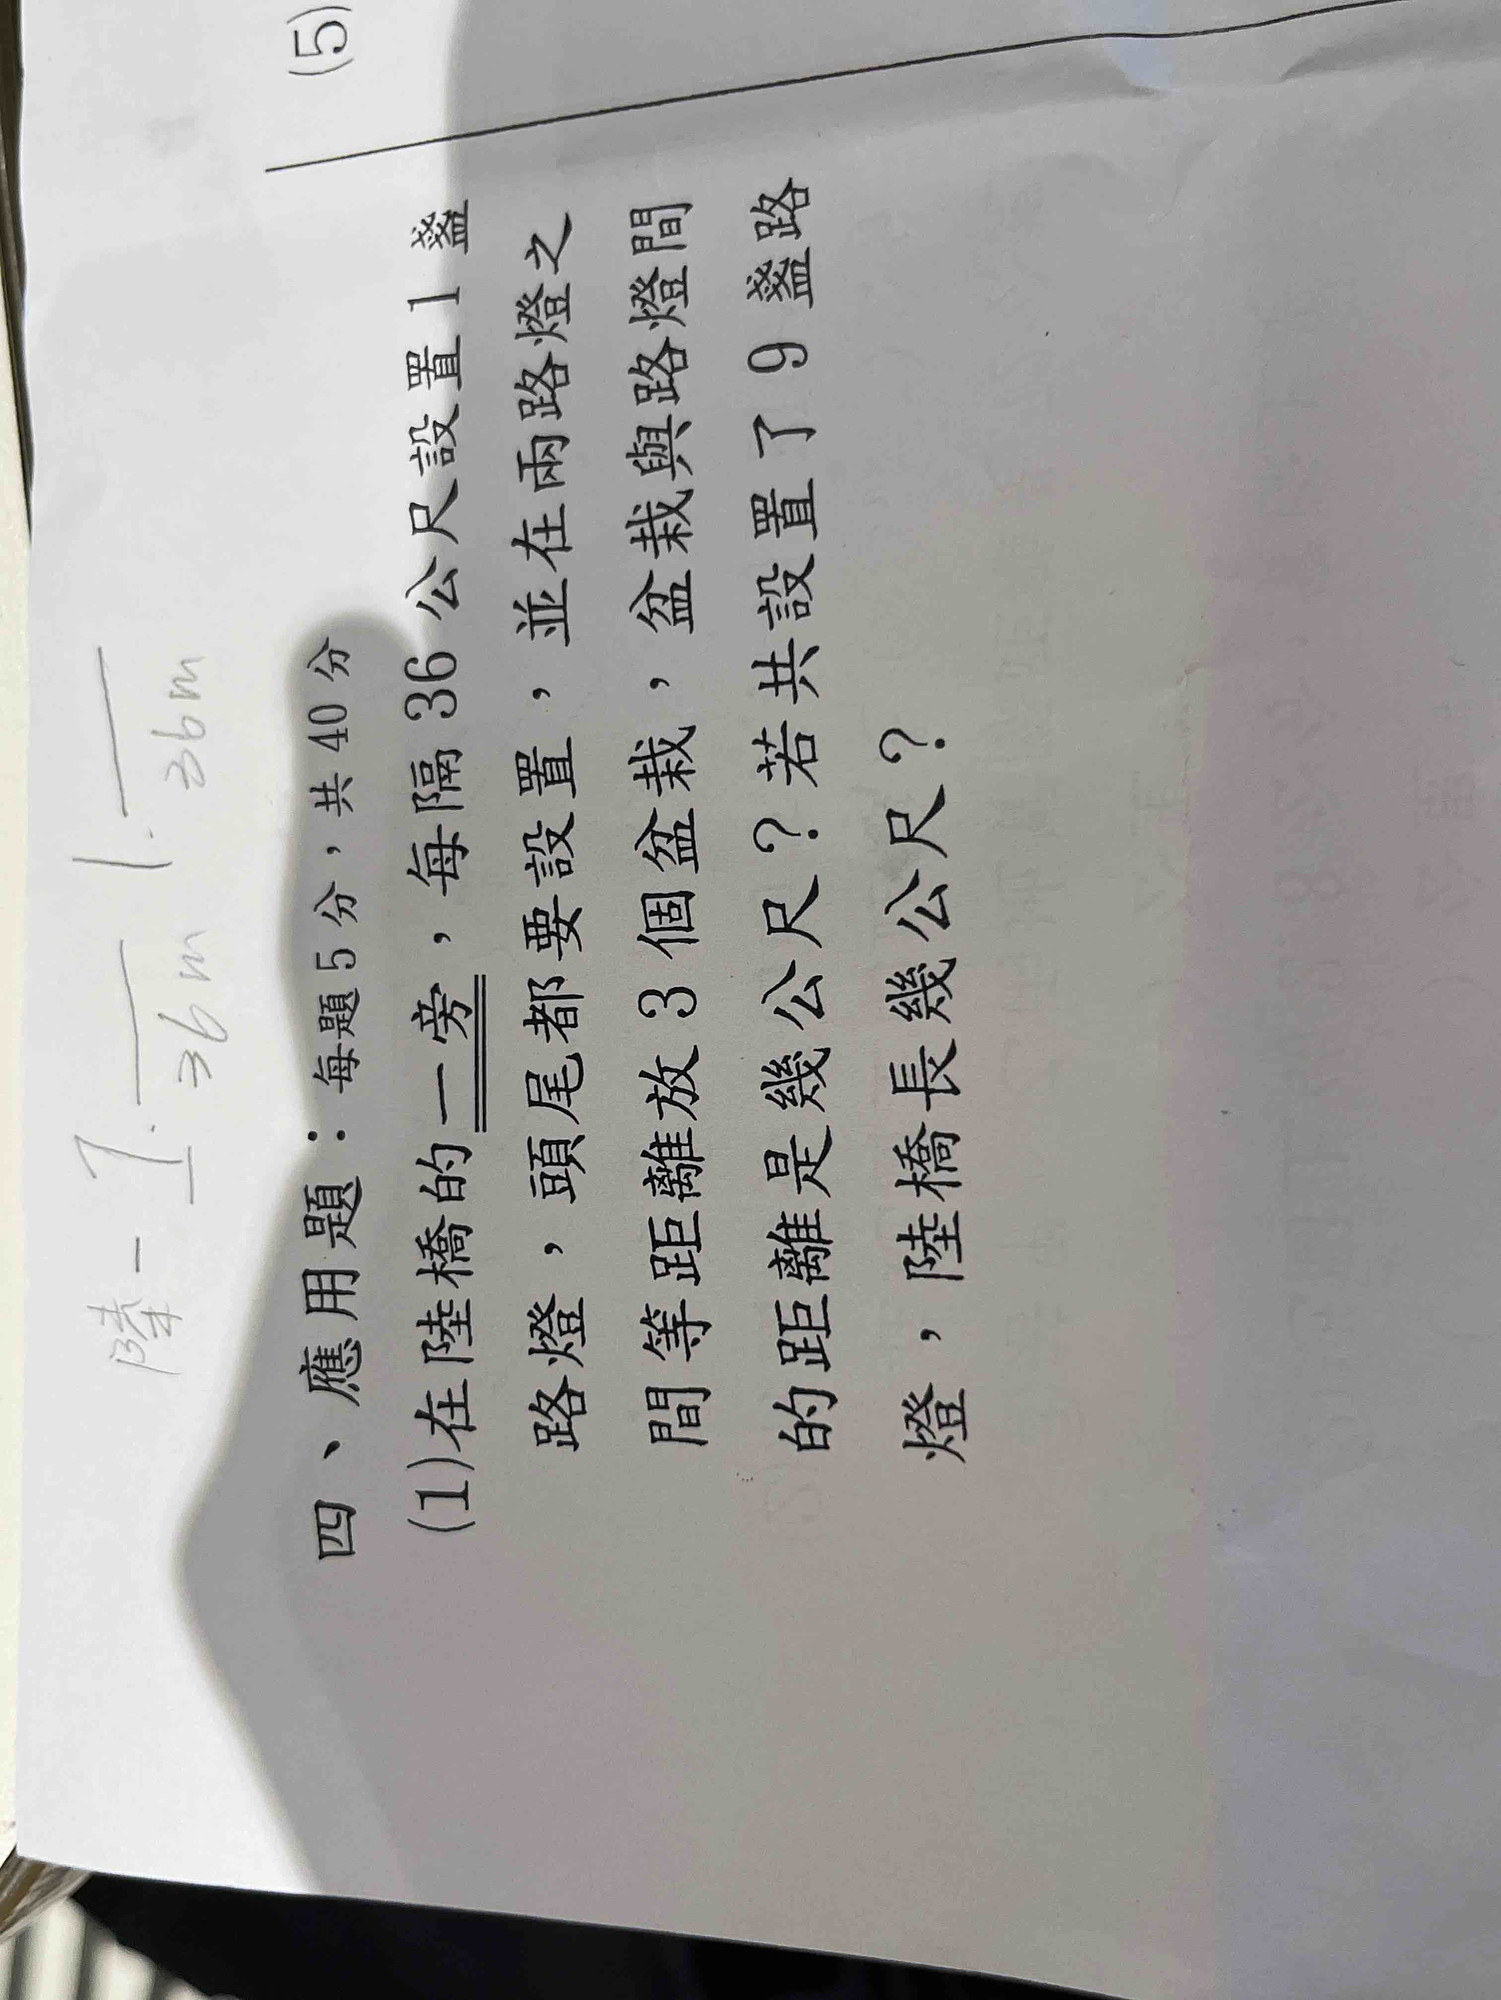 陸
36m 36m
四、應用題：每題5分，共40分
(1)在陸橋的一旁，每隔36公尺設置1盞
路燈，頭尾都要設置，並在兩路燈之
間等距離放3個盆栽，盆栽與路燈間
的距離是幾公尺？若共設置了9盞路
燈，陸橋長幾公尺？
(5)